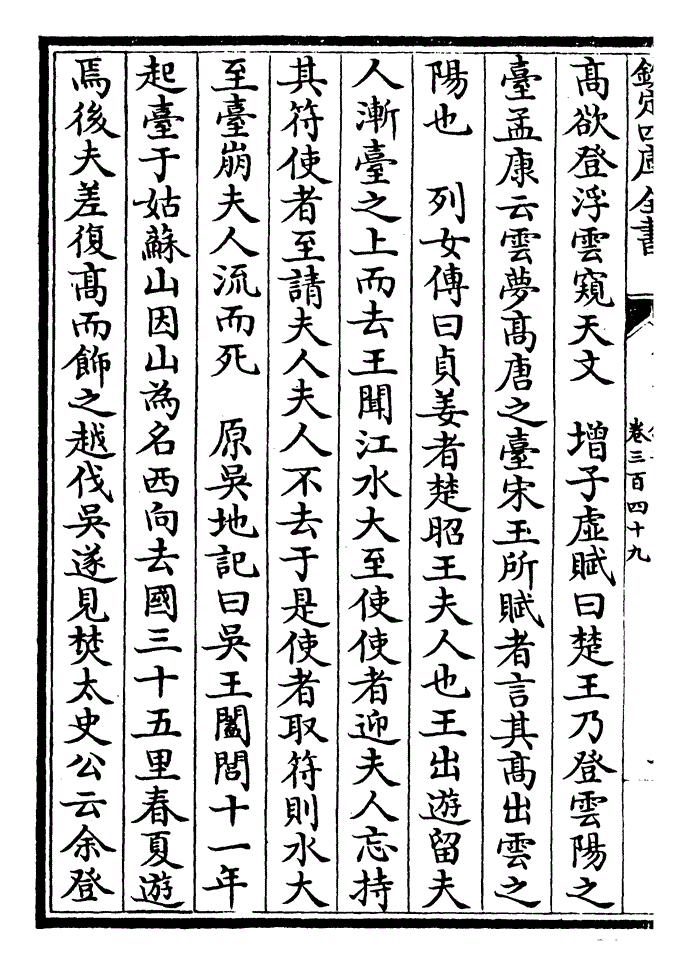 欽定四庫全書
卷三百四十九
髙欲登浮雲窺天文　增子虛賦曰楚王乃登雲陽之
臺孟康云雲夢髙唐之臺宋玉所賦者言其髙出雲之
陽也　列女傳曰貞姜者楚昭王夫人也王出遊留夫
人漸臺之上而去王聞江水大至使使者迎夫人忘持
其符使者至請夫人夫人不去于是使者取符則水大
至臺崩夫人流而死　原吳地記曰吳王闔閭十一年
起臺于姑蘇山因山為名西向去國三十五里春夏遊
焉後夫差復髙而飾之越伐吳遂見焚太史公云余登